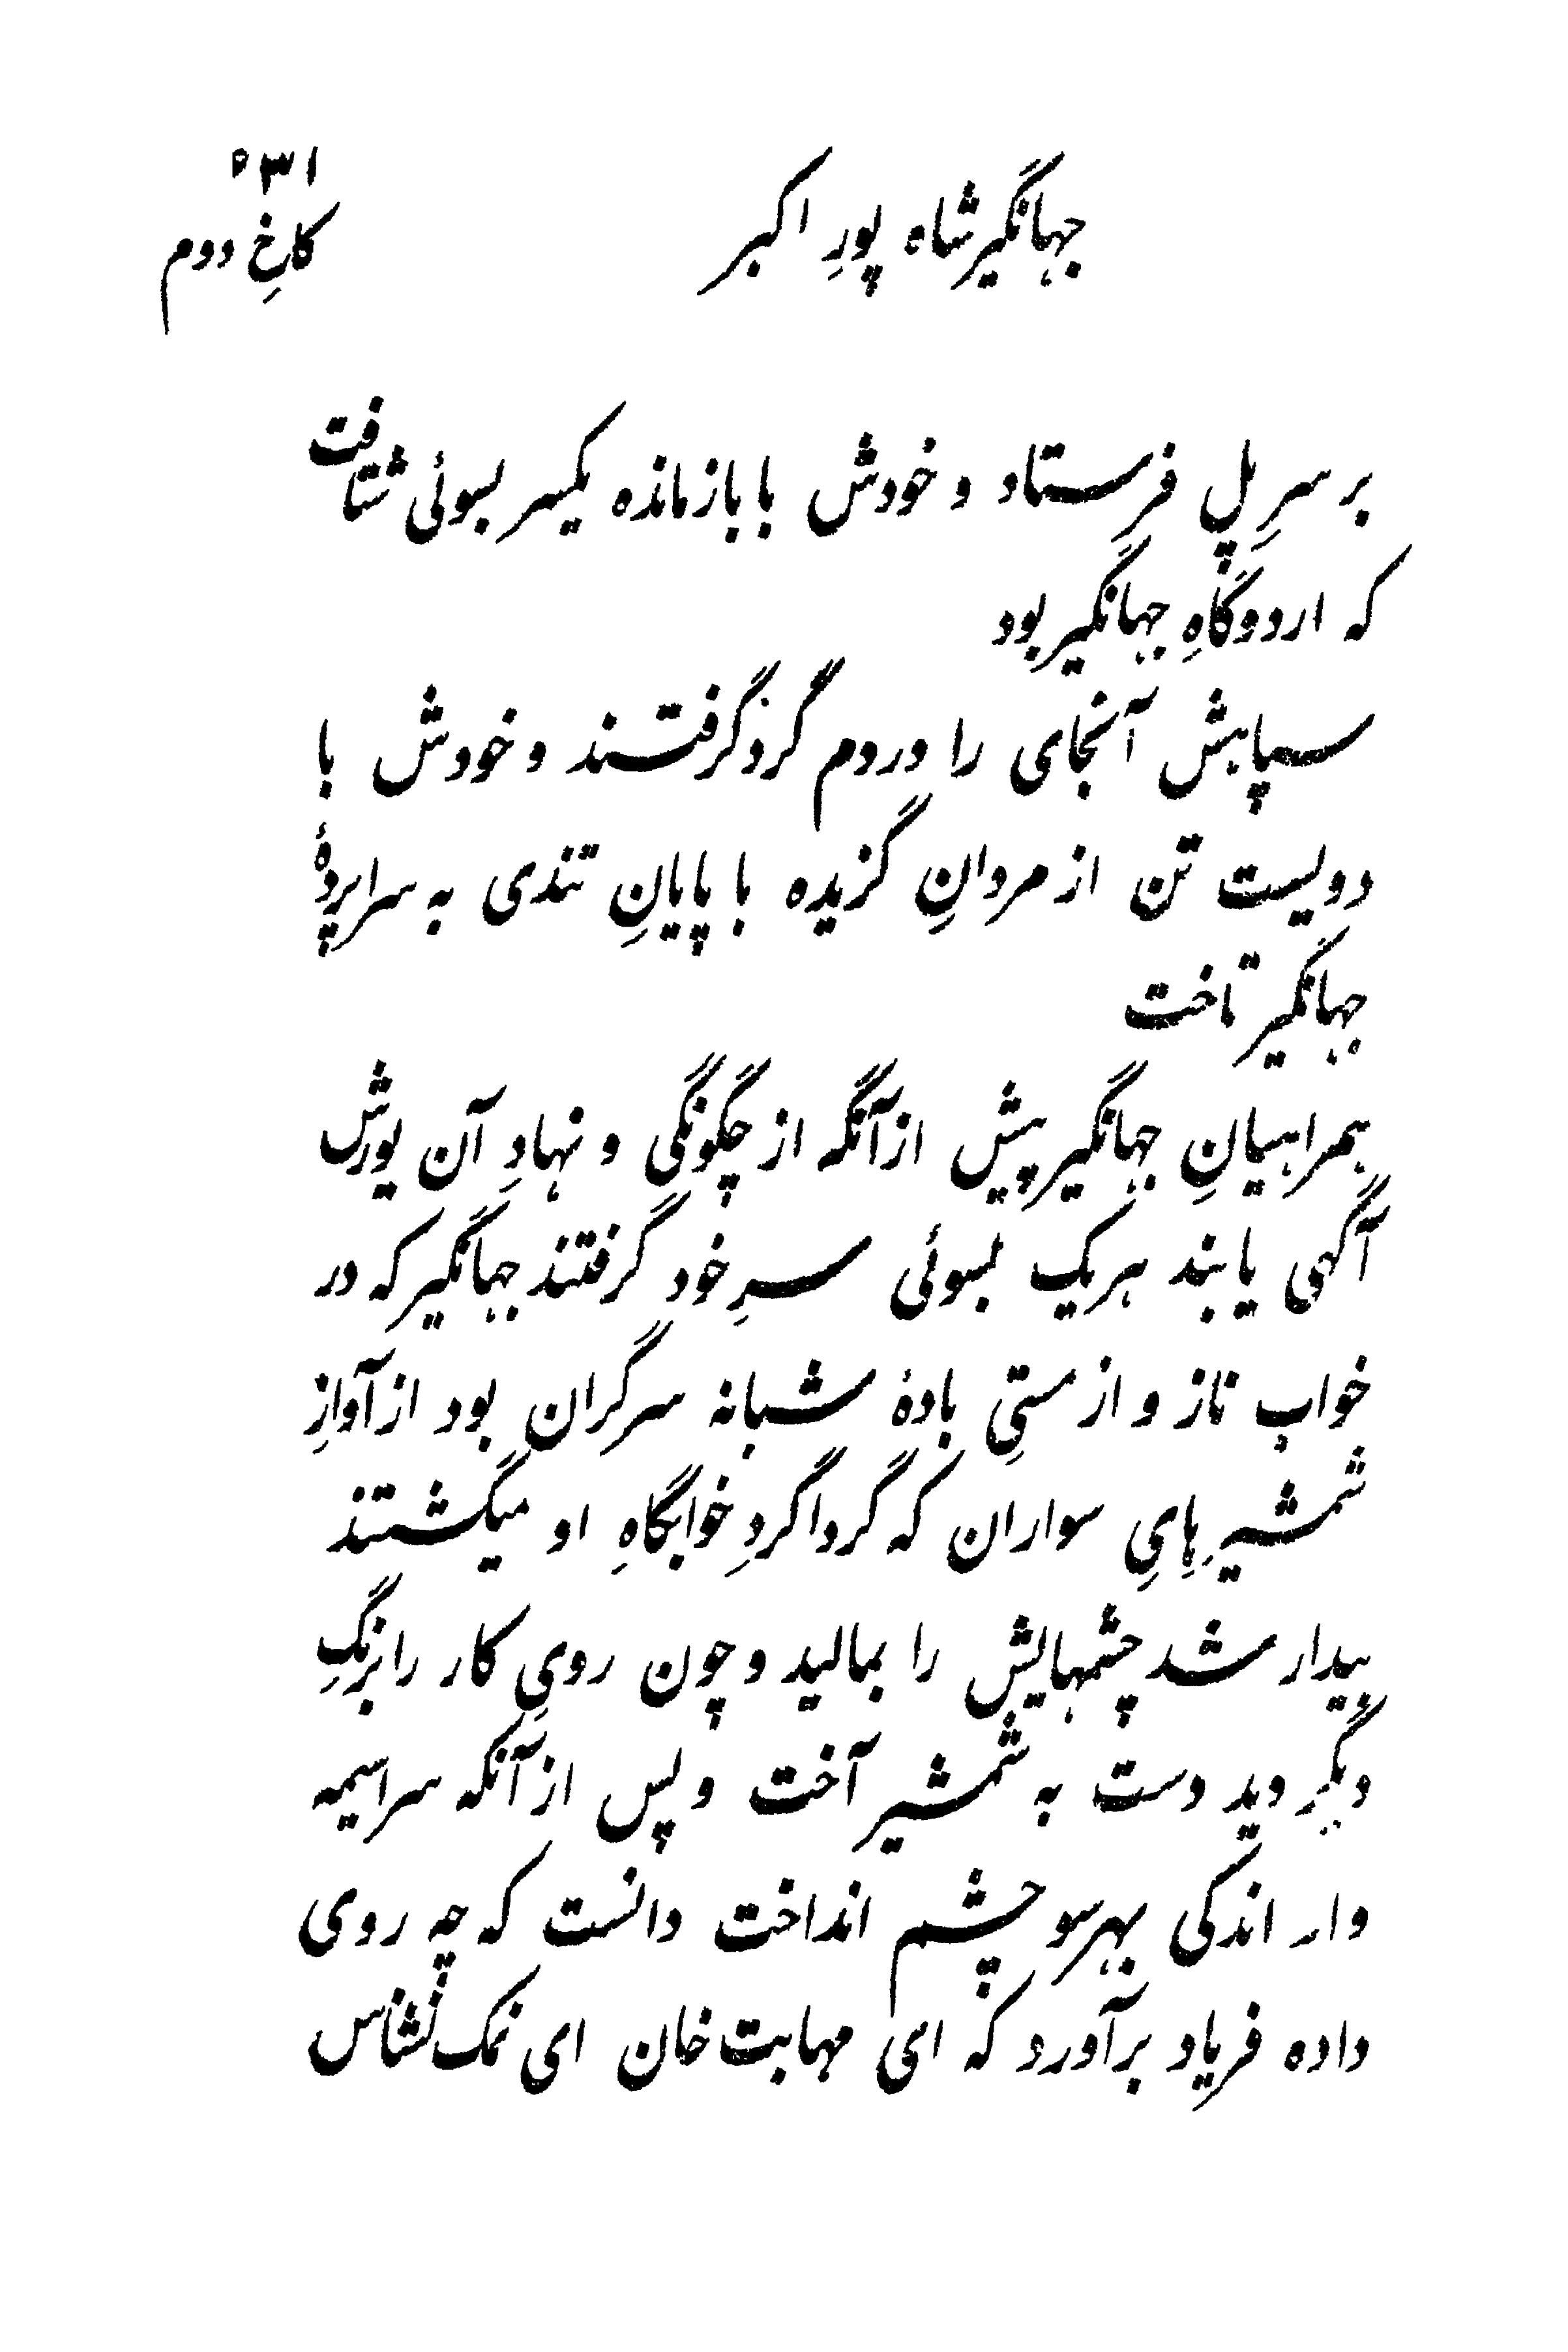 ۵۳۱
جهانگیر شاه پورِ اکبر
کاخِ دوم
بر سرِ پل فرستاد و خودش با بازمانده یکسر بسوئی شتافت
که اردوگاهِ جهانگیر بود
سپاهش آنجای را در دم گرو گرفتند و خودش با
دویست تن از مردانِ گزیده با پایانِ تندی به سراپردهٔ
جهانگیر تاخت
همراهیانِ جهانگیر پیش از آنگه از چگونگی و نهادِ آن یورش
آگهی یابند هر یک بسوئی سرِ خود گرفتند جهانگیر که در
خواب ناز و از مستیِ بادهٔ شبانه سرگران بود از آوازِ
شمشیرهایِ سواران که گرداگردِ خوابگاهِ او میگشتند
بیدار شد چشمهایش را بمالید و چون رویِ کار را برنگِ
دیگر دید دست به شمشیر آخت و پس از آنکه سراسیمه
وار اندکی بهر سو چشم انداخت دانست که چه روی
داده فریاد برآورد که ای مهابت خان ای نمک نشناس